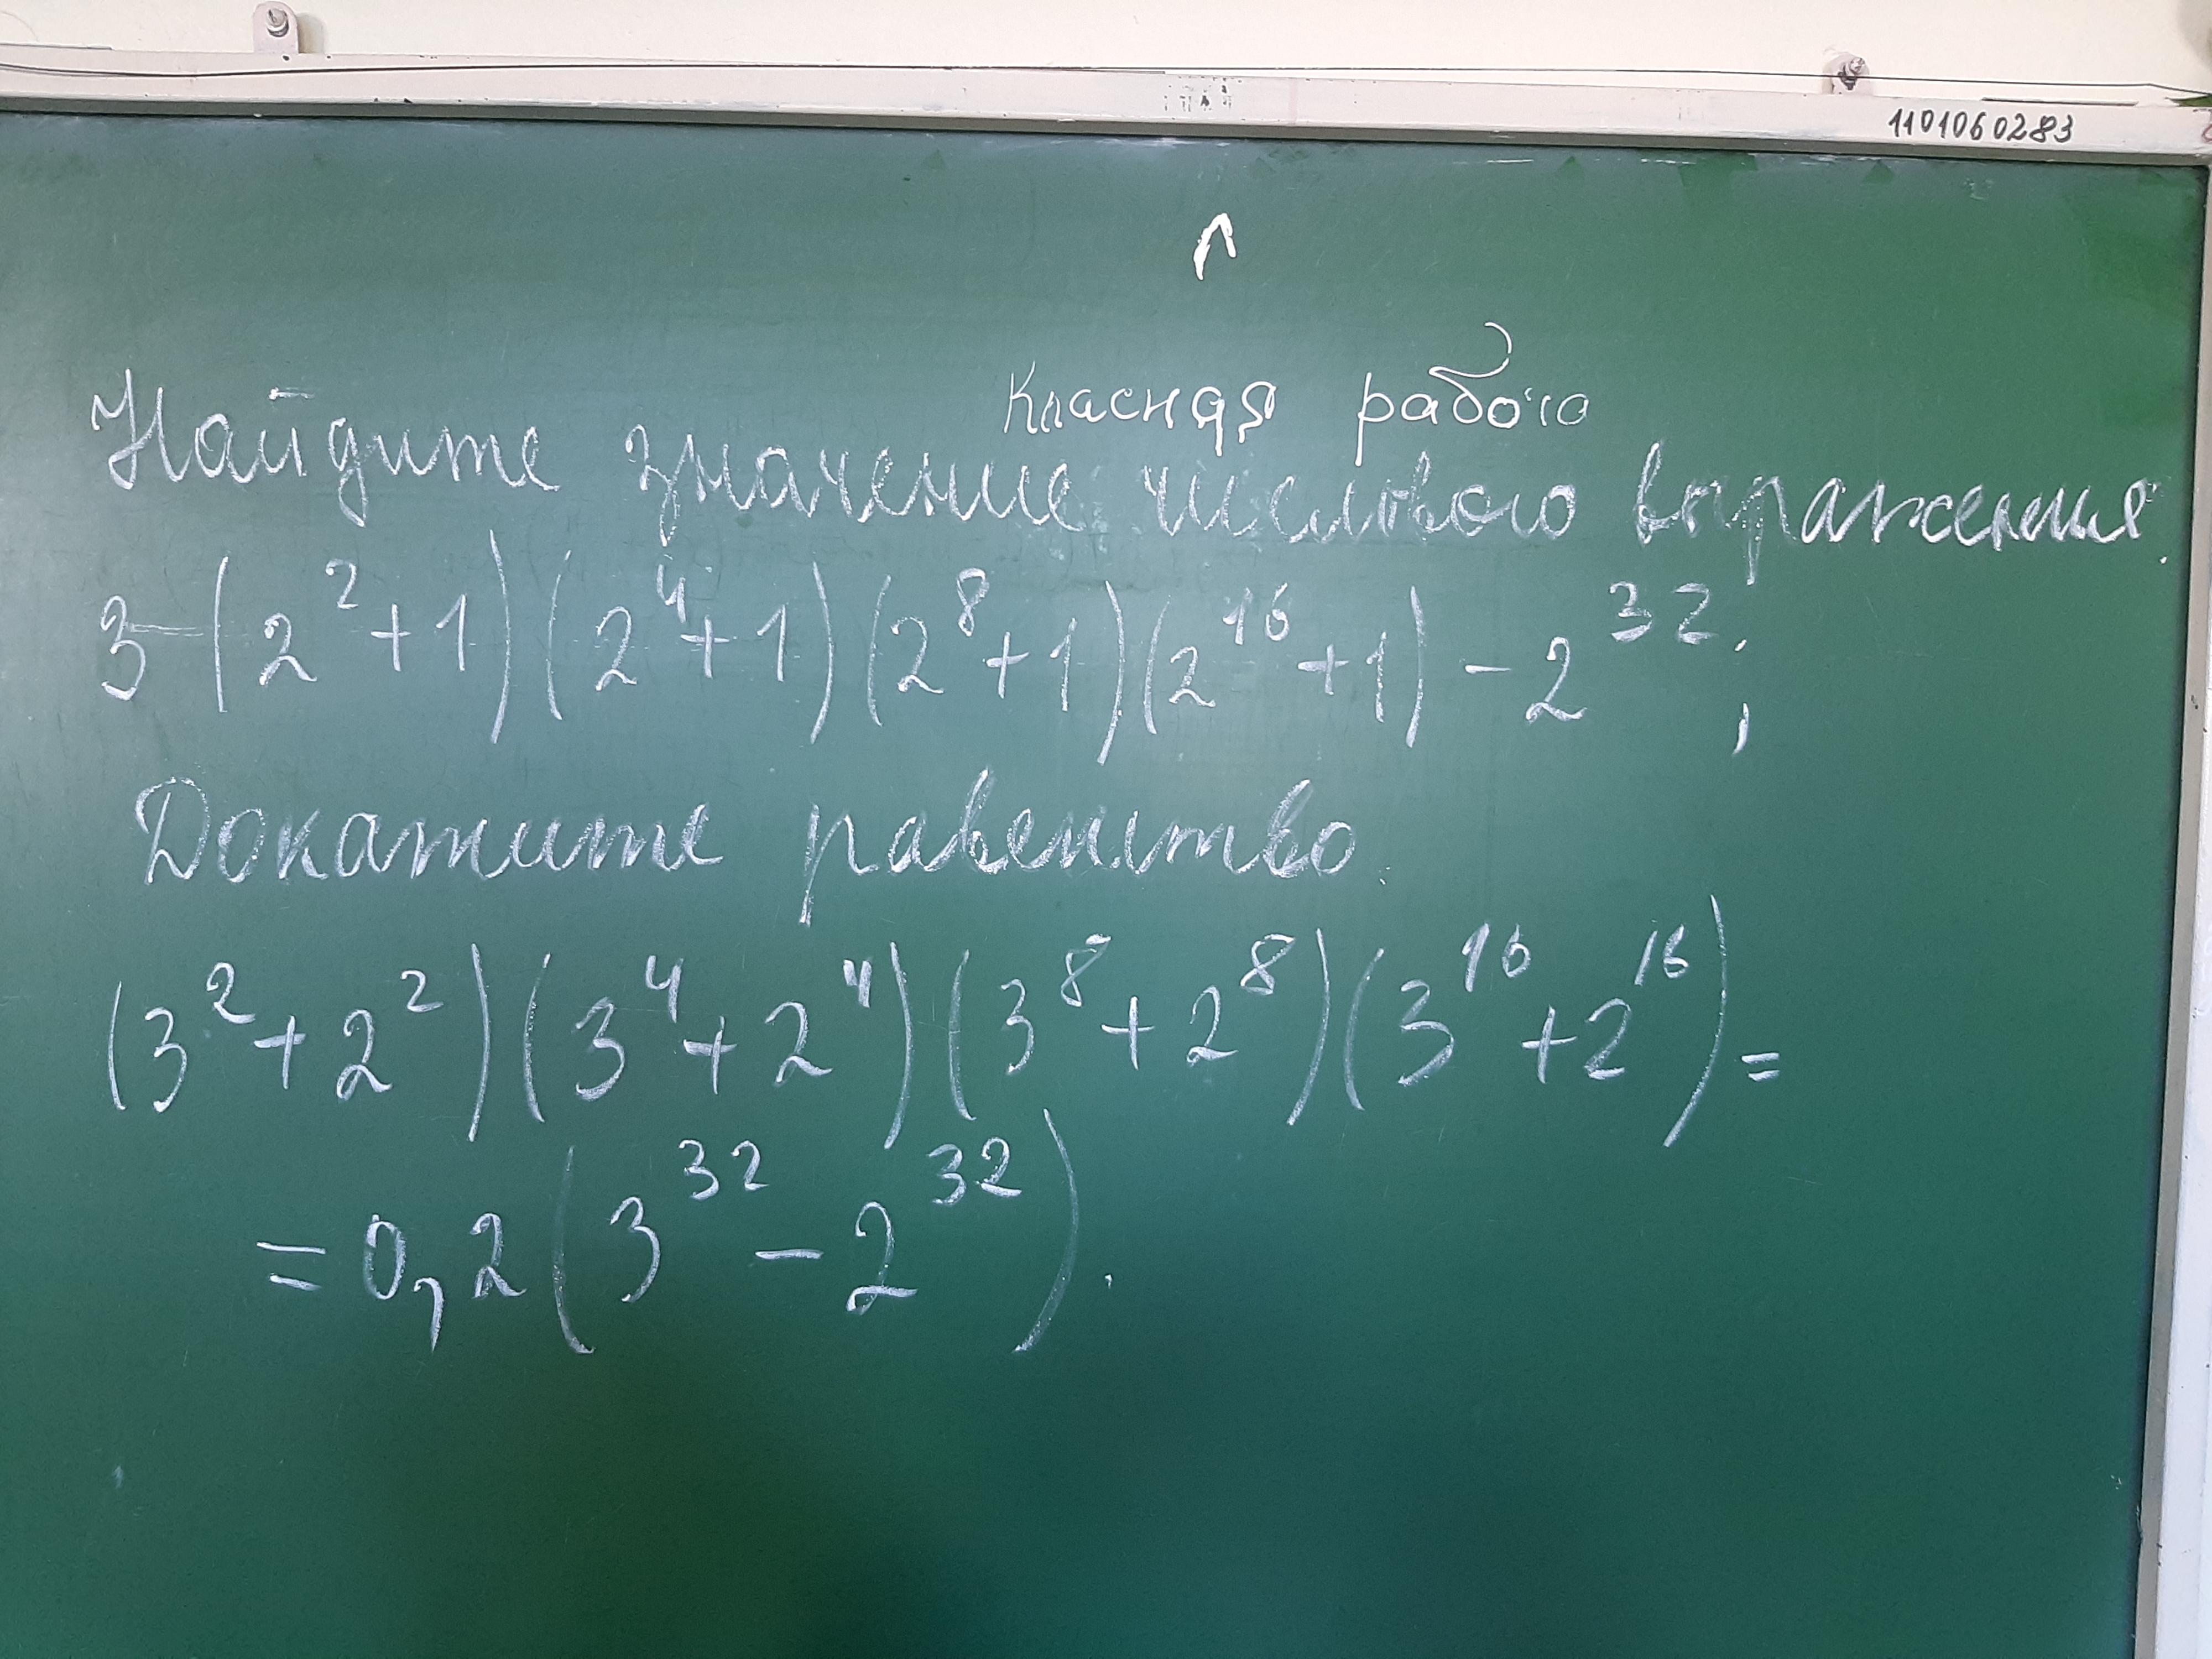 1101060283
Класная работа
Найдите значение числового выражения.
3 (2² + 1) (2⁴ + 1) (2⁸ + 1) (2¹⁶ + 1) - 2³²;
Докажите равенство.
(3² + 2²) (3⁴ + 2⁴) (3⁸ + 2⁸) (3¹⁶ + 2¹⁶) =
= 0,2 (3³² - 2³²).